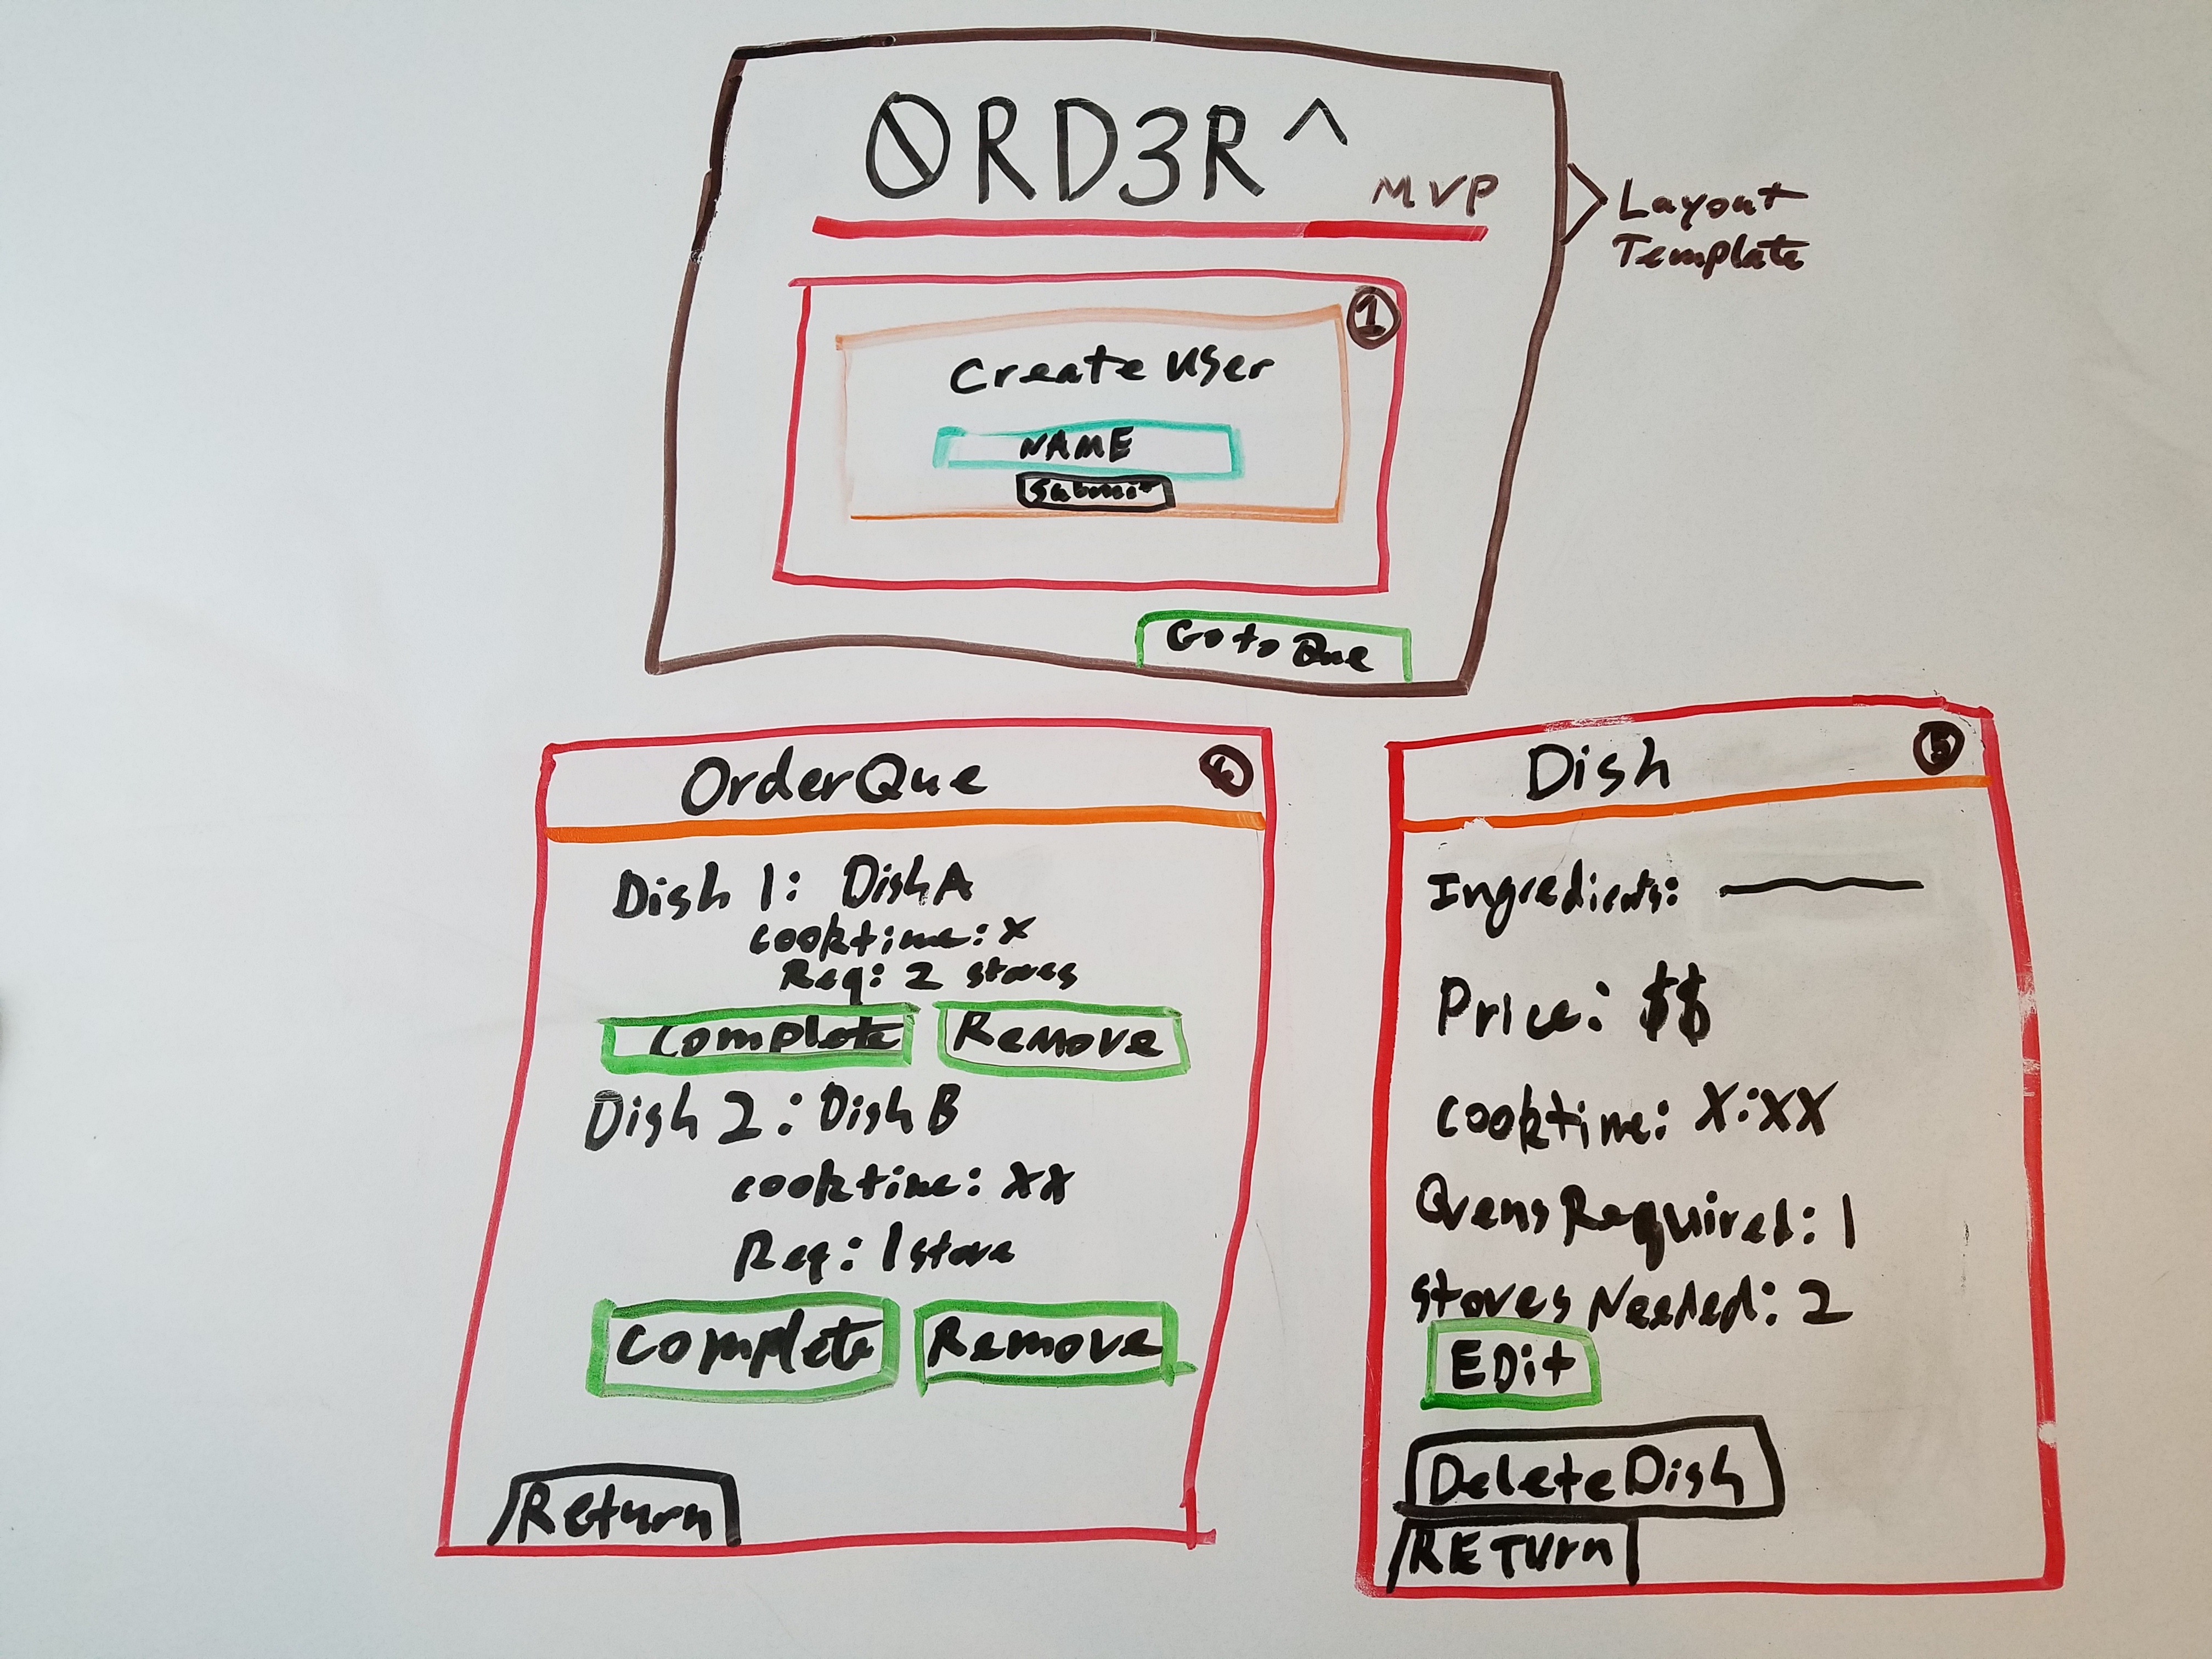 ØRD3R^
MVP
Layout
Template
1
Create User
NAME
Submit
Go to Que
OrderQue
Dish 1: Dish A
cooktime: x
Req: 2 stoves
Complete Remove
Dish 2: Dish B
cooktime: xx
Req: 1 stove
Complete Remove
Return
Dish
5
Ingredients:
Price: $$
cooktime: X:XX
Ovens Required: 1
Stoves Needed: 2
EDit
Delete Dish
RETurn